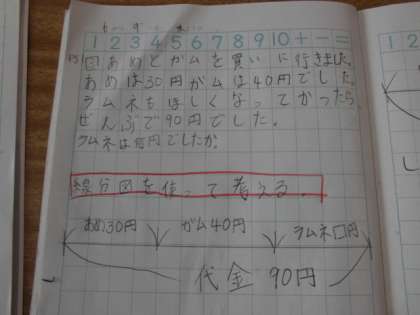 1 2 3 4 5 6 7 8 9 10 + − =
問 あめとガムを買いに行きました。
あめは30円ガムは40円でした。
ラムネもほしくなってかったら
ぜんぶで90円でした。
ラムネは何円でしたか。
線分図を使って考える。
あめ30円 ガム40円 ラムネ□円
代金 90円